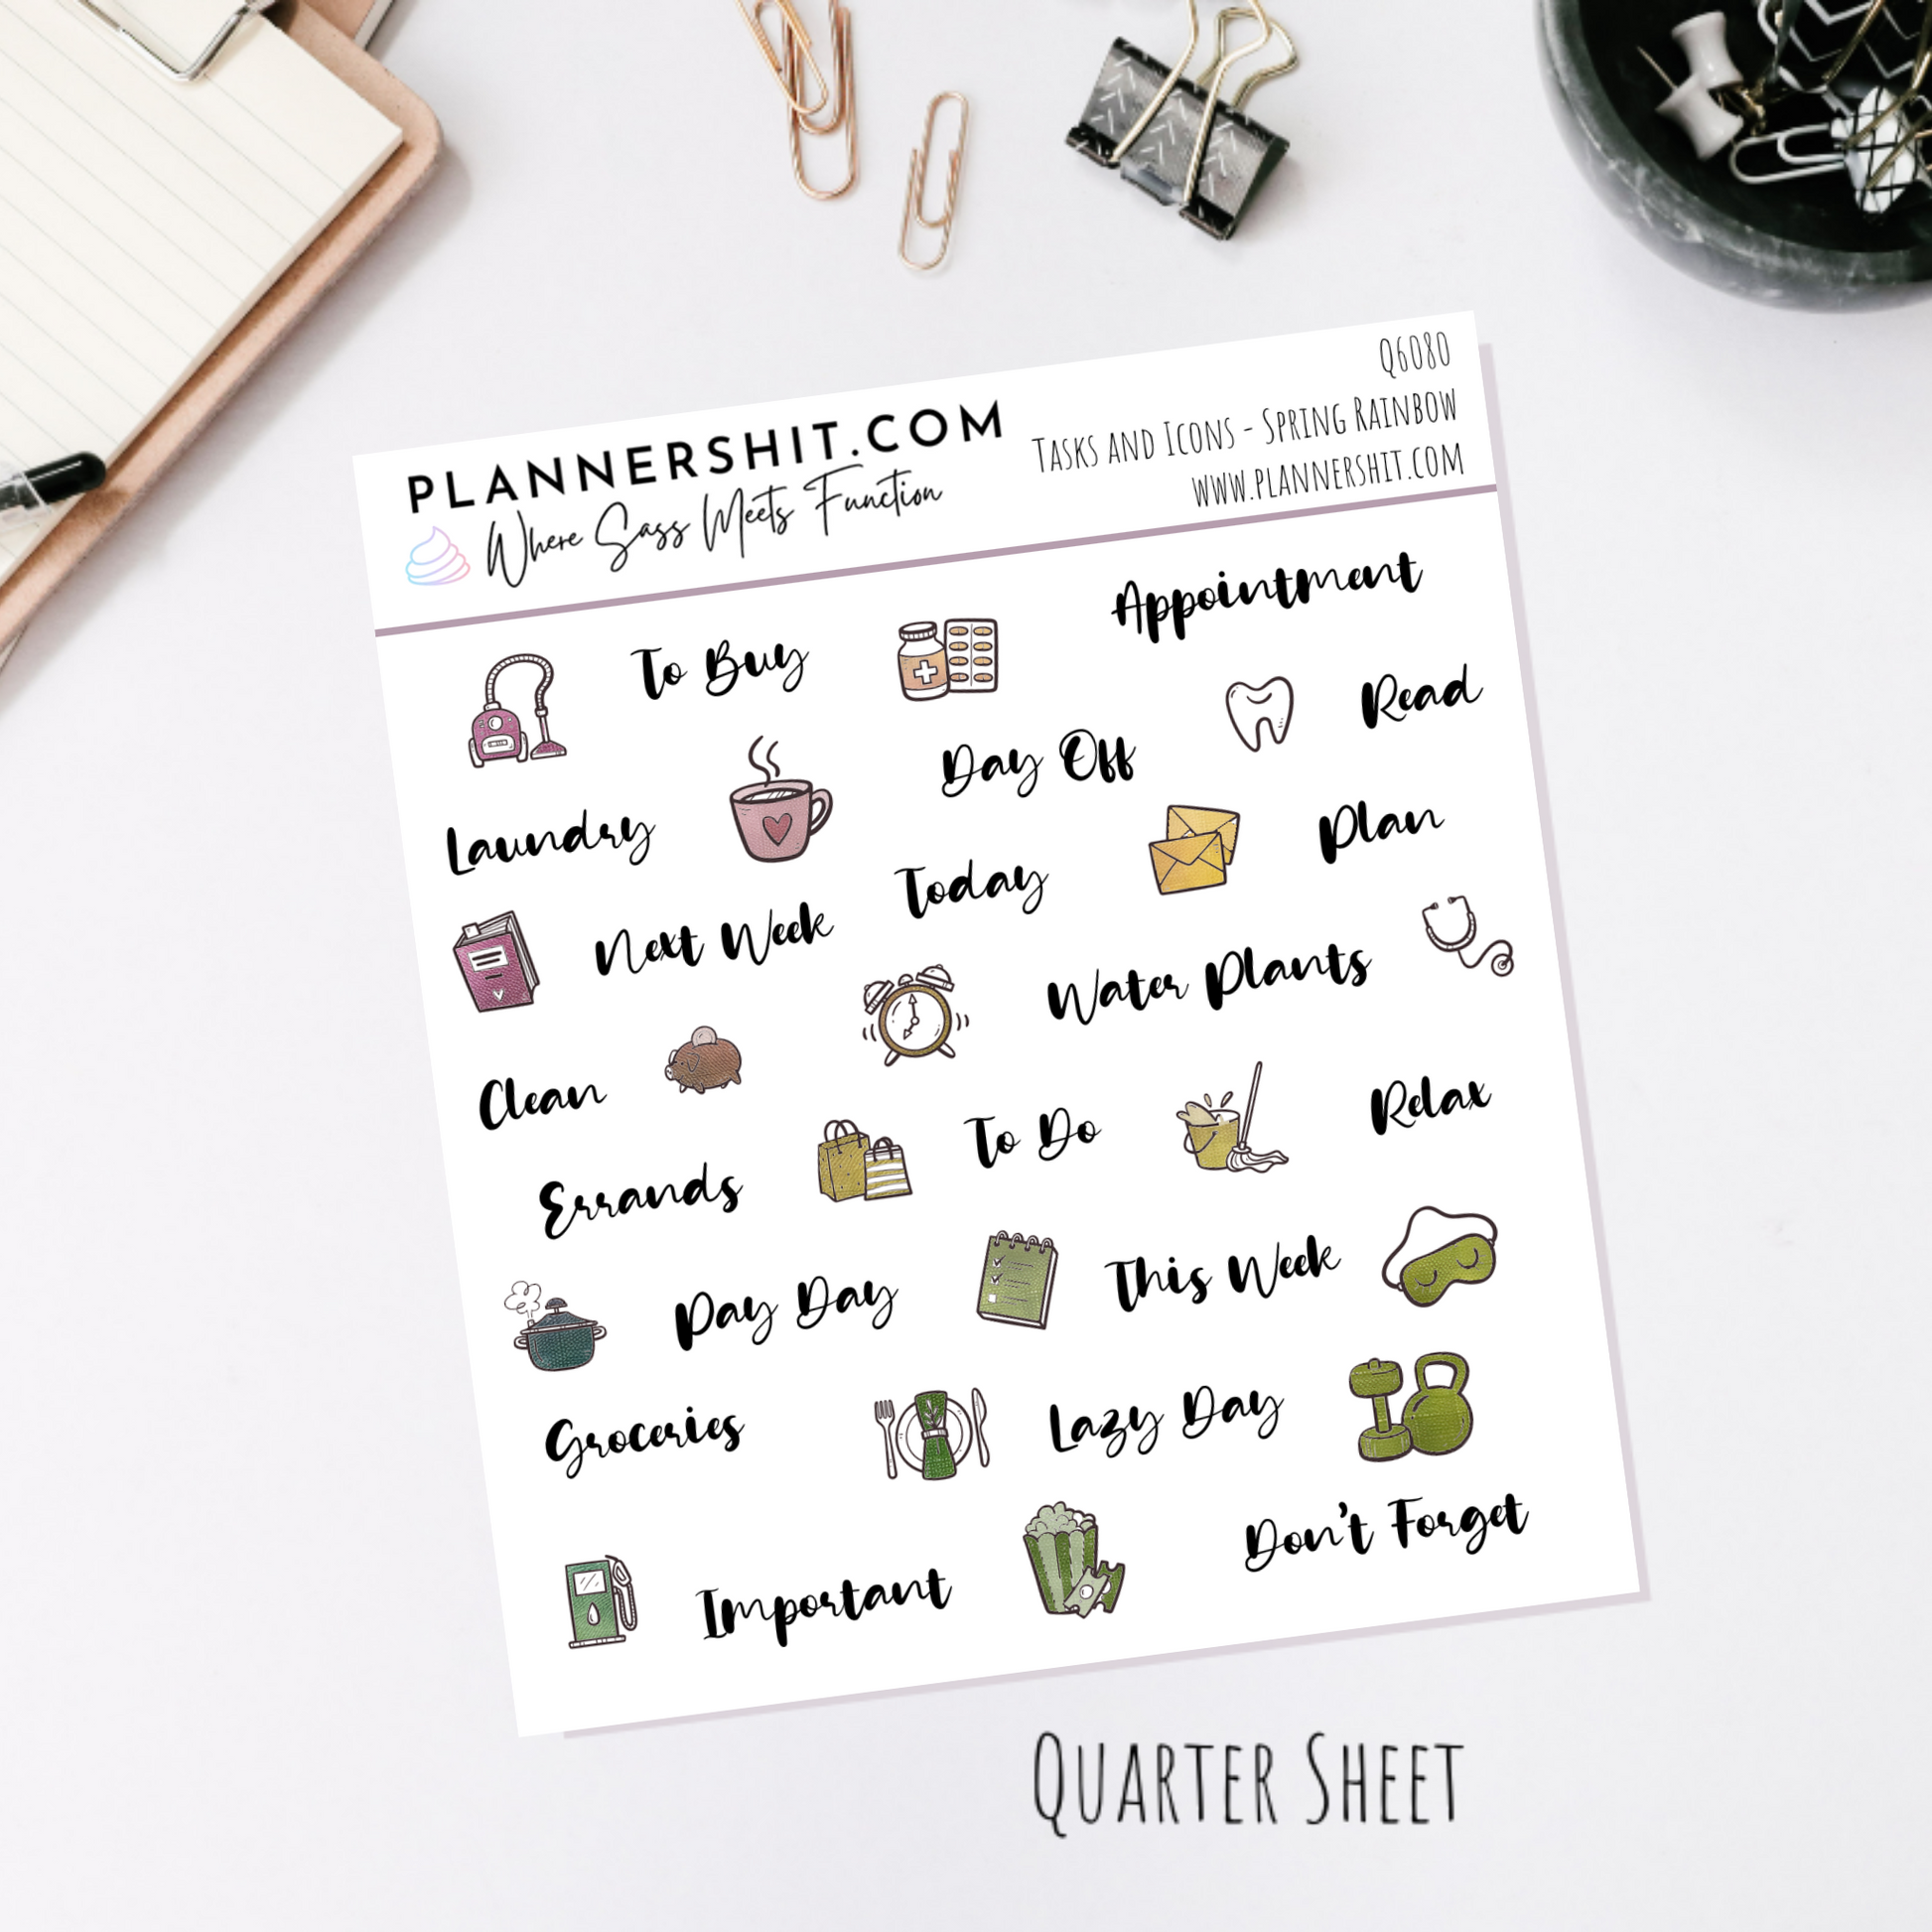 PLANNERSHIT.COM
Where Sass Meets Function
Q6080
Tasks and Icons - Spring Rainbow
www.plannershit.com
To Buy
Appointment
Read
Day Off
Laundry
Plan
Today
Next Week
Water Plants
Clean
Relax
To Do
Errands
This Week
Pay Day
Lazy Day
Groceries
Don't Forget
Important
Quarter Sheet